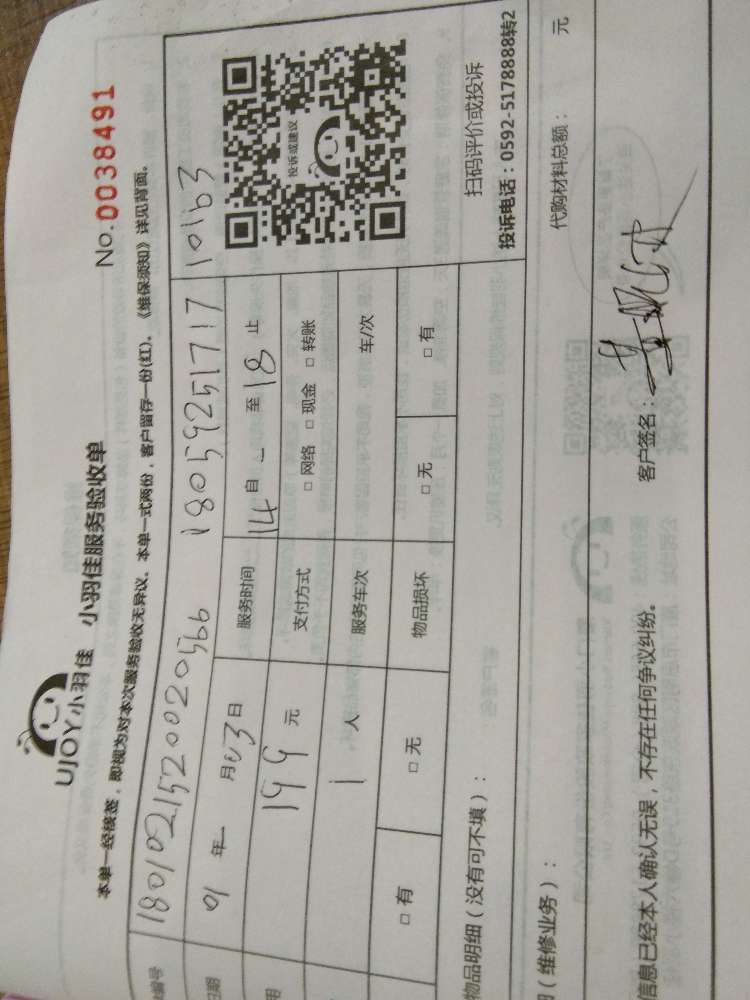 UJOY小羽佳 小羽佳服务验收单
No.0038491
本单一经核签，即视为对本次服务验收无异议。本单一式两份，客户留存一份(红)。《维保须知》详见背面。
编号 180102152002056 18059251717 10163
日期 年 月 03 日 服务时间 14 自 至 18 止
用 199 元 支付方式 □ 网络 □ 现金 □ 转账
1 人 服务车次 车/次
□ 有 □ 无 物品损坏 □ 无 □ 有
投诉或建议
扫码评价或投诉
投诉电话：0592-5178888转2
物品明细（没有可不填）：
（维修业务）： 代购材料总额： 元
信息已经本人确认无误，不存在任何争议纠纷。 客户签名：